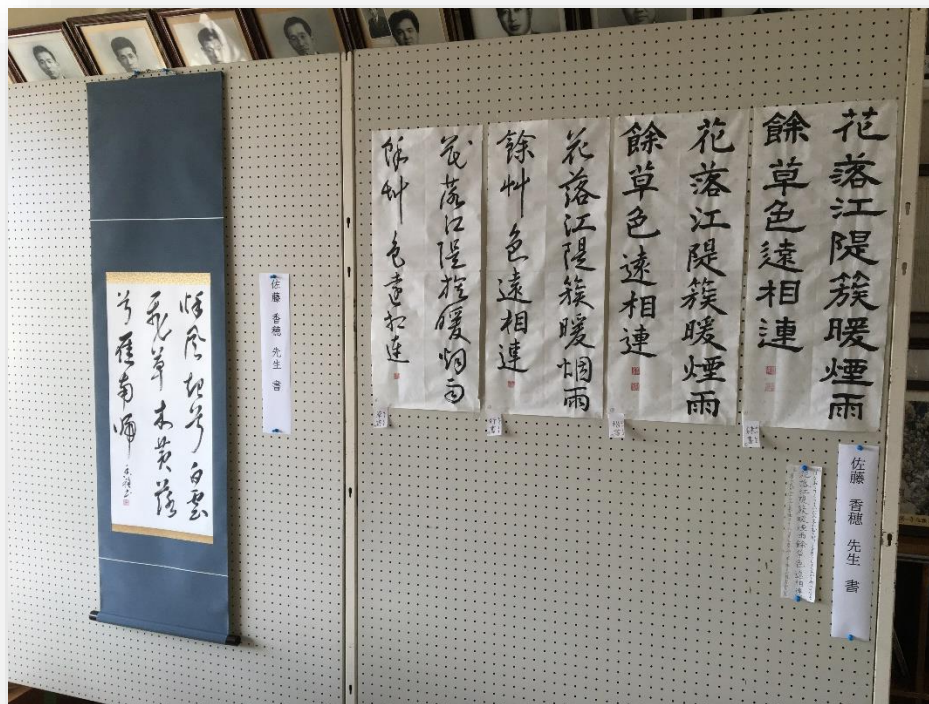 花落江隄簇暖煙雨
餘草色遠相連
花落江隄簇暖煙雨
餘草色遠相連
花落江隄簇暖烟雨
餘艸色遠相連
花落江隄簇暖烟雨
餘艸色遠相連
佐藤 香穂 先生 書
佐藤 香穂 先生 書
秋風起兮白雲
飛草木黄落
兮雁南帰